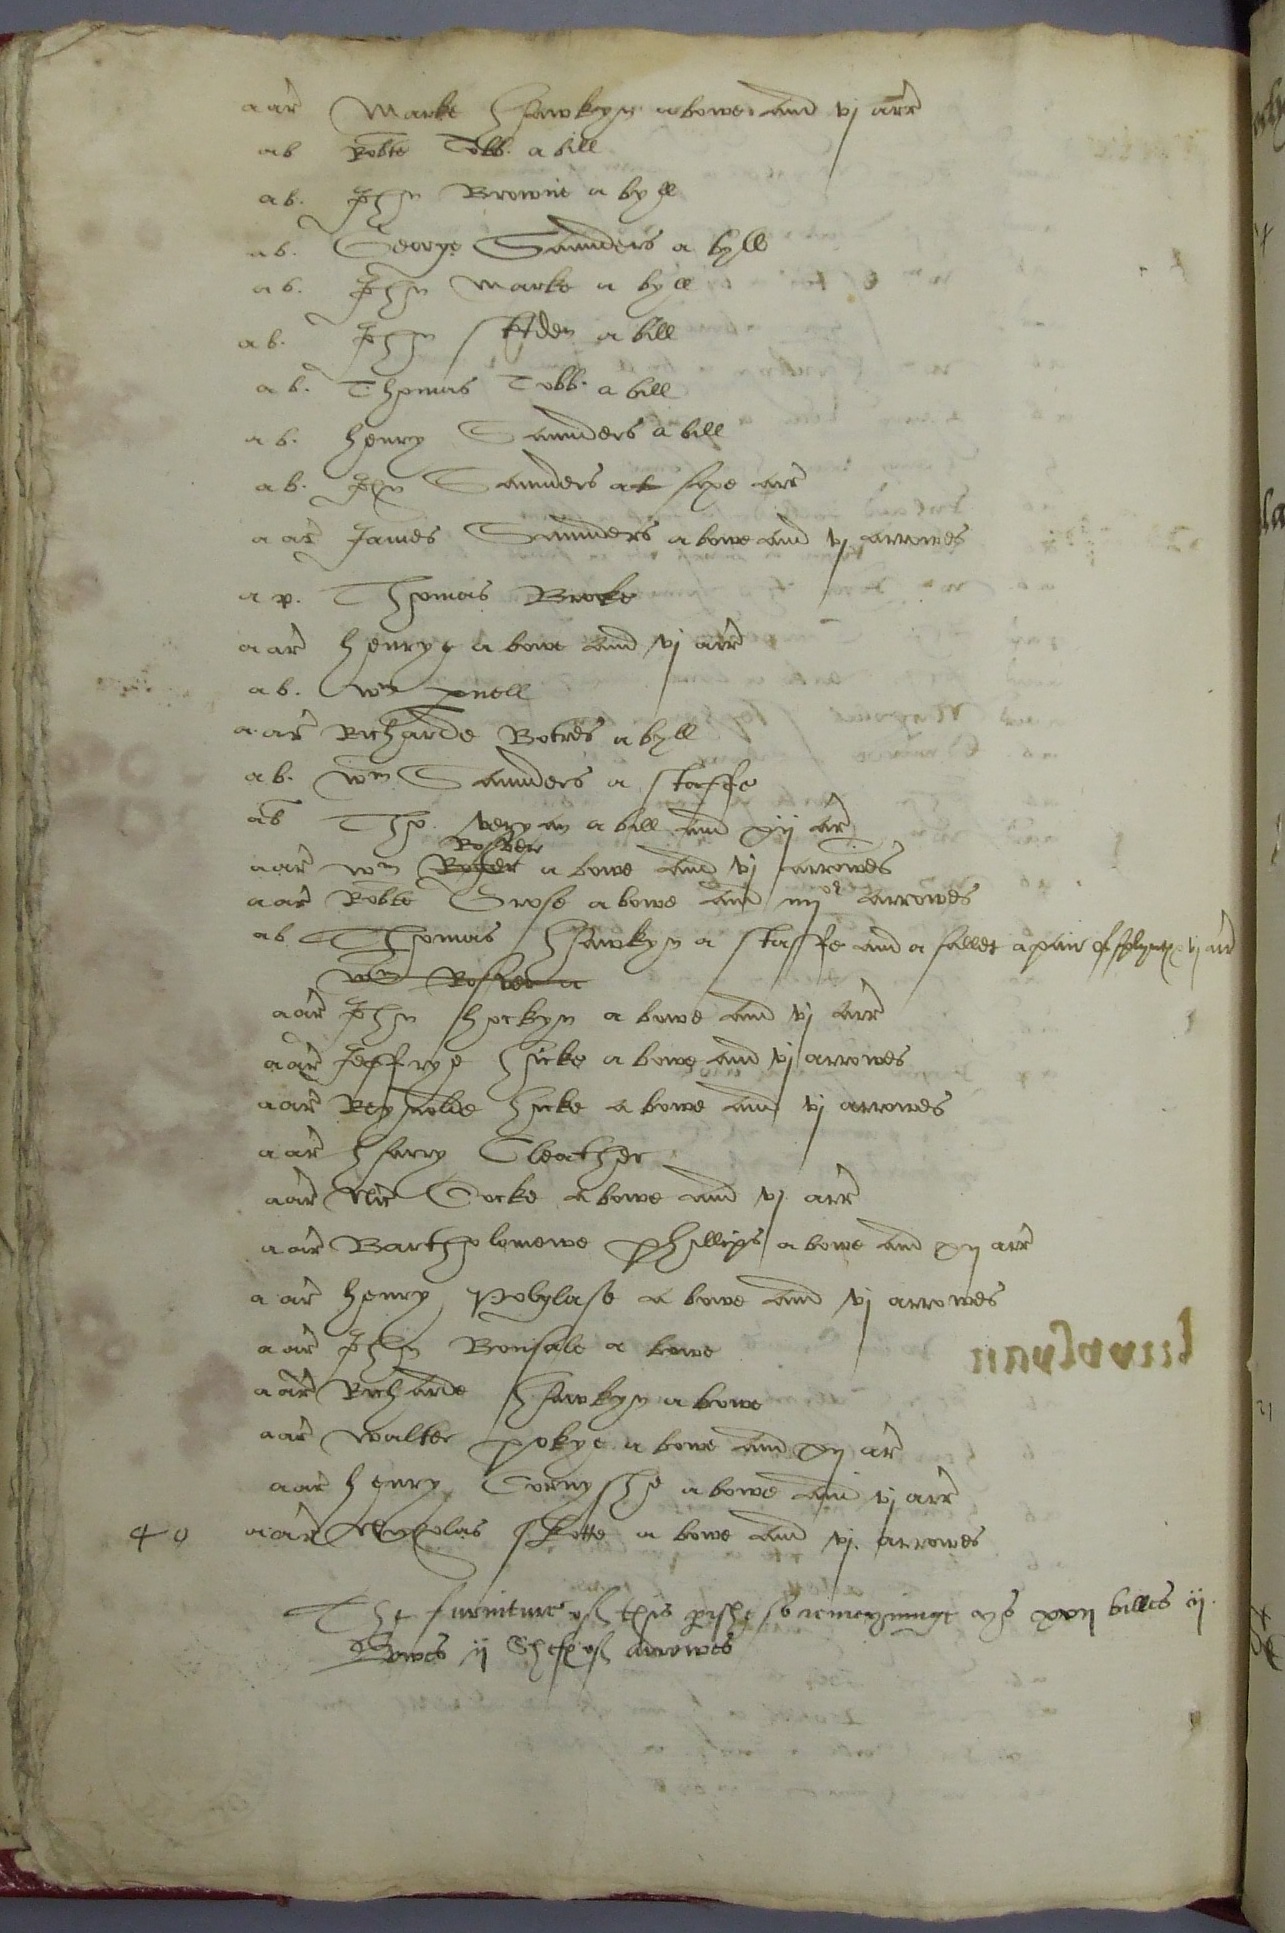 a ar Marke Hawkyn a bowe and vj arr
ab Robte Tobb. a bill
ab. John Browne a byll
ab. George Saunders a byll
ab. John Marke a byll
ab. John a bill
ab. Thomas Tobb. a bill
ab. Henry Saunders a bill
ab. John Saunders arr
a ar James Saunders a bowe and vj arrowes
a p. Thomas Broke
a ar Henrye a bowe and vj arr
ab. Wm pnell
a ar Richarde Botres a byll
ab. Wm Saunders a staffe
ab Tho. veryan a bill and xij ar
Rosker
a ar Wm Roger a bowe and vj arrowes
a ar Robte Grose a bowe and iiijor arrowes
ab Thomas Hawkyn a staffe and a sallet a pair of splyntes vj arr
Wm Rosker a
a ar John Hockyn a bowe and vj arr
a ar Jeffrye Hicke a bowe and vj arrowes
a ar Reynolde Hicke a bowe and vj arrowes
a ar Harry Cleather
a ar Nic Cocke a bowe and vj arr
a ar Bartholomewe Phillips a bowe and xij arr
a ar Henry Pobylase a bowe and vj arrowes
a ar John Bonsale a bowe
a ar Richarde Hawkyn a bowe
a ar Walter pokye a bowe and xij ar
a ar Henry Cornyshe a bowe and vj arr
40 a ar Nycholas Skotte a bowe and vj. arrowes
The furniture of this pishe so remeyninge ys xxij billes ij.
Bowes ij Shef of arrowes